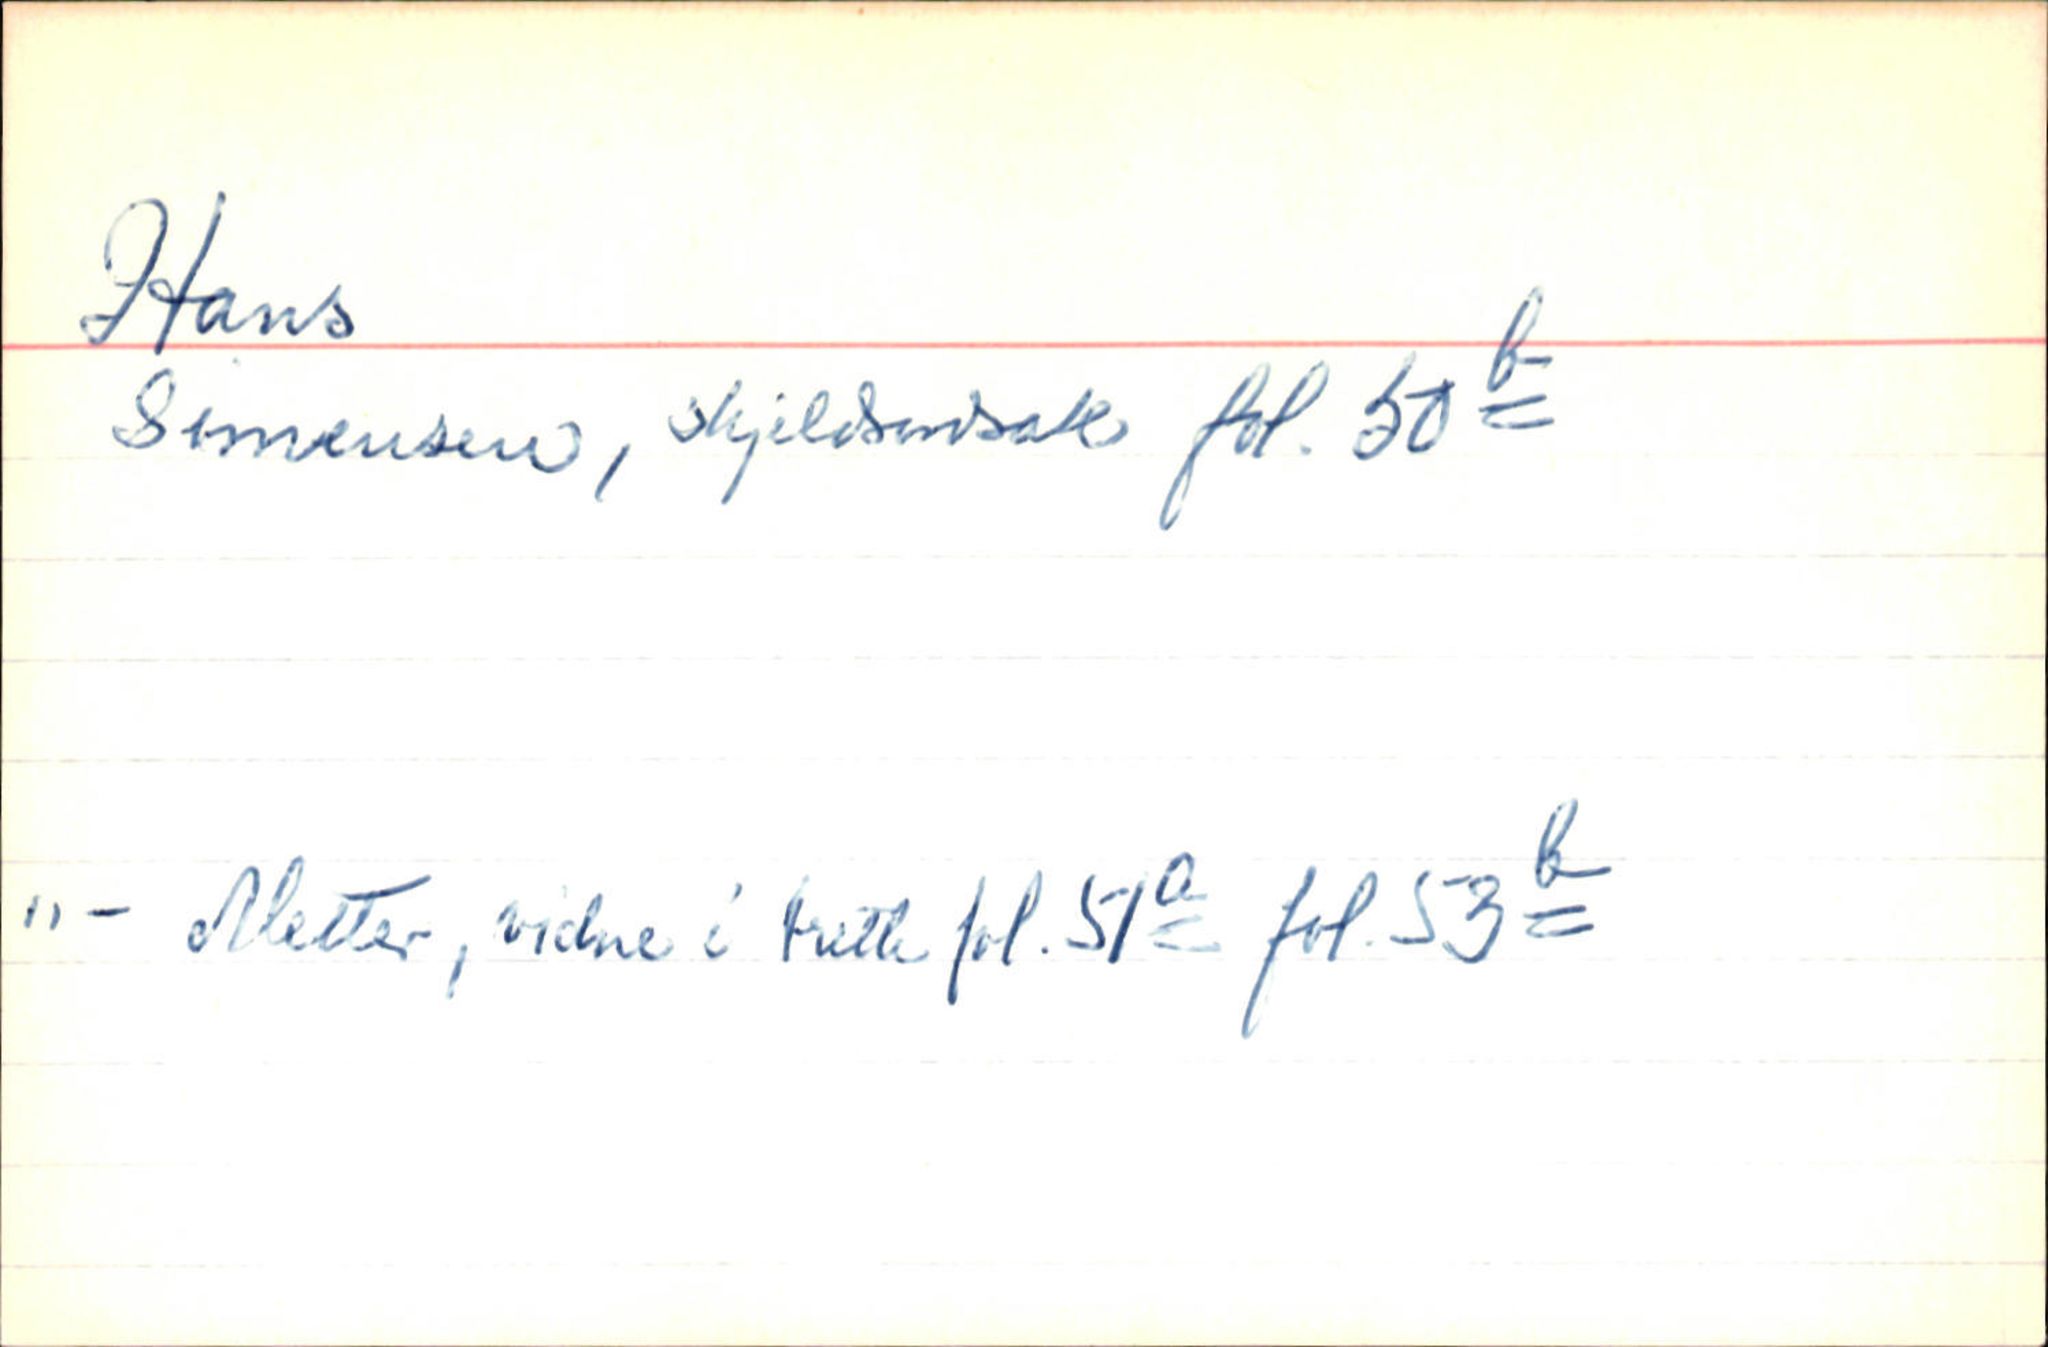 Hans
Simensen, skjeldsordsak fol. 50 b
"- Metter, vidne i trette fol. 51 a fol. 53 b